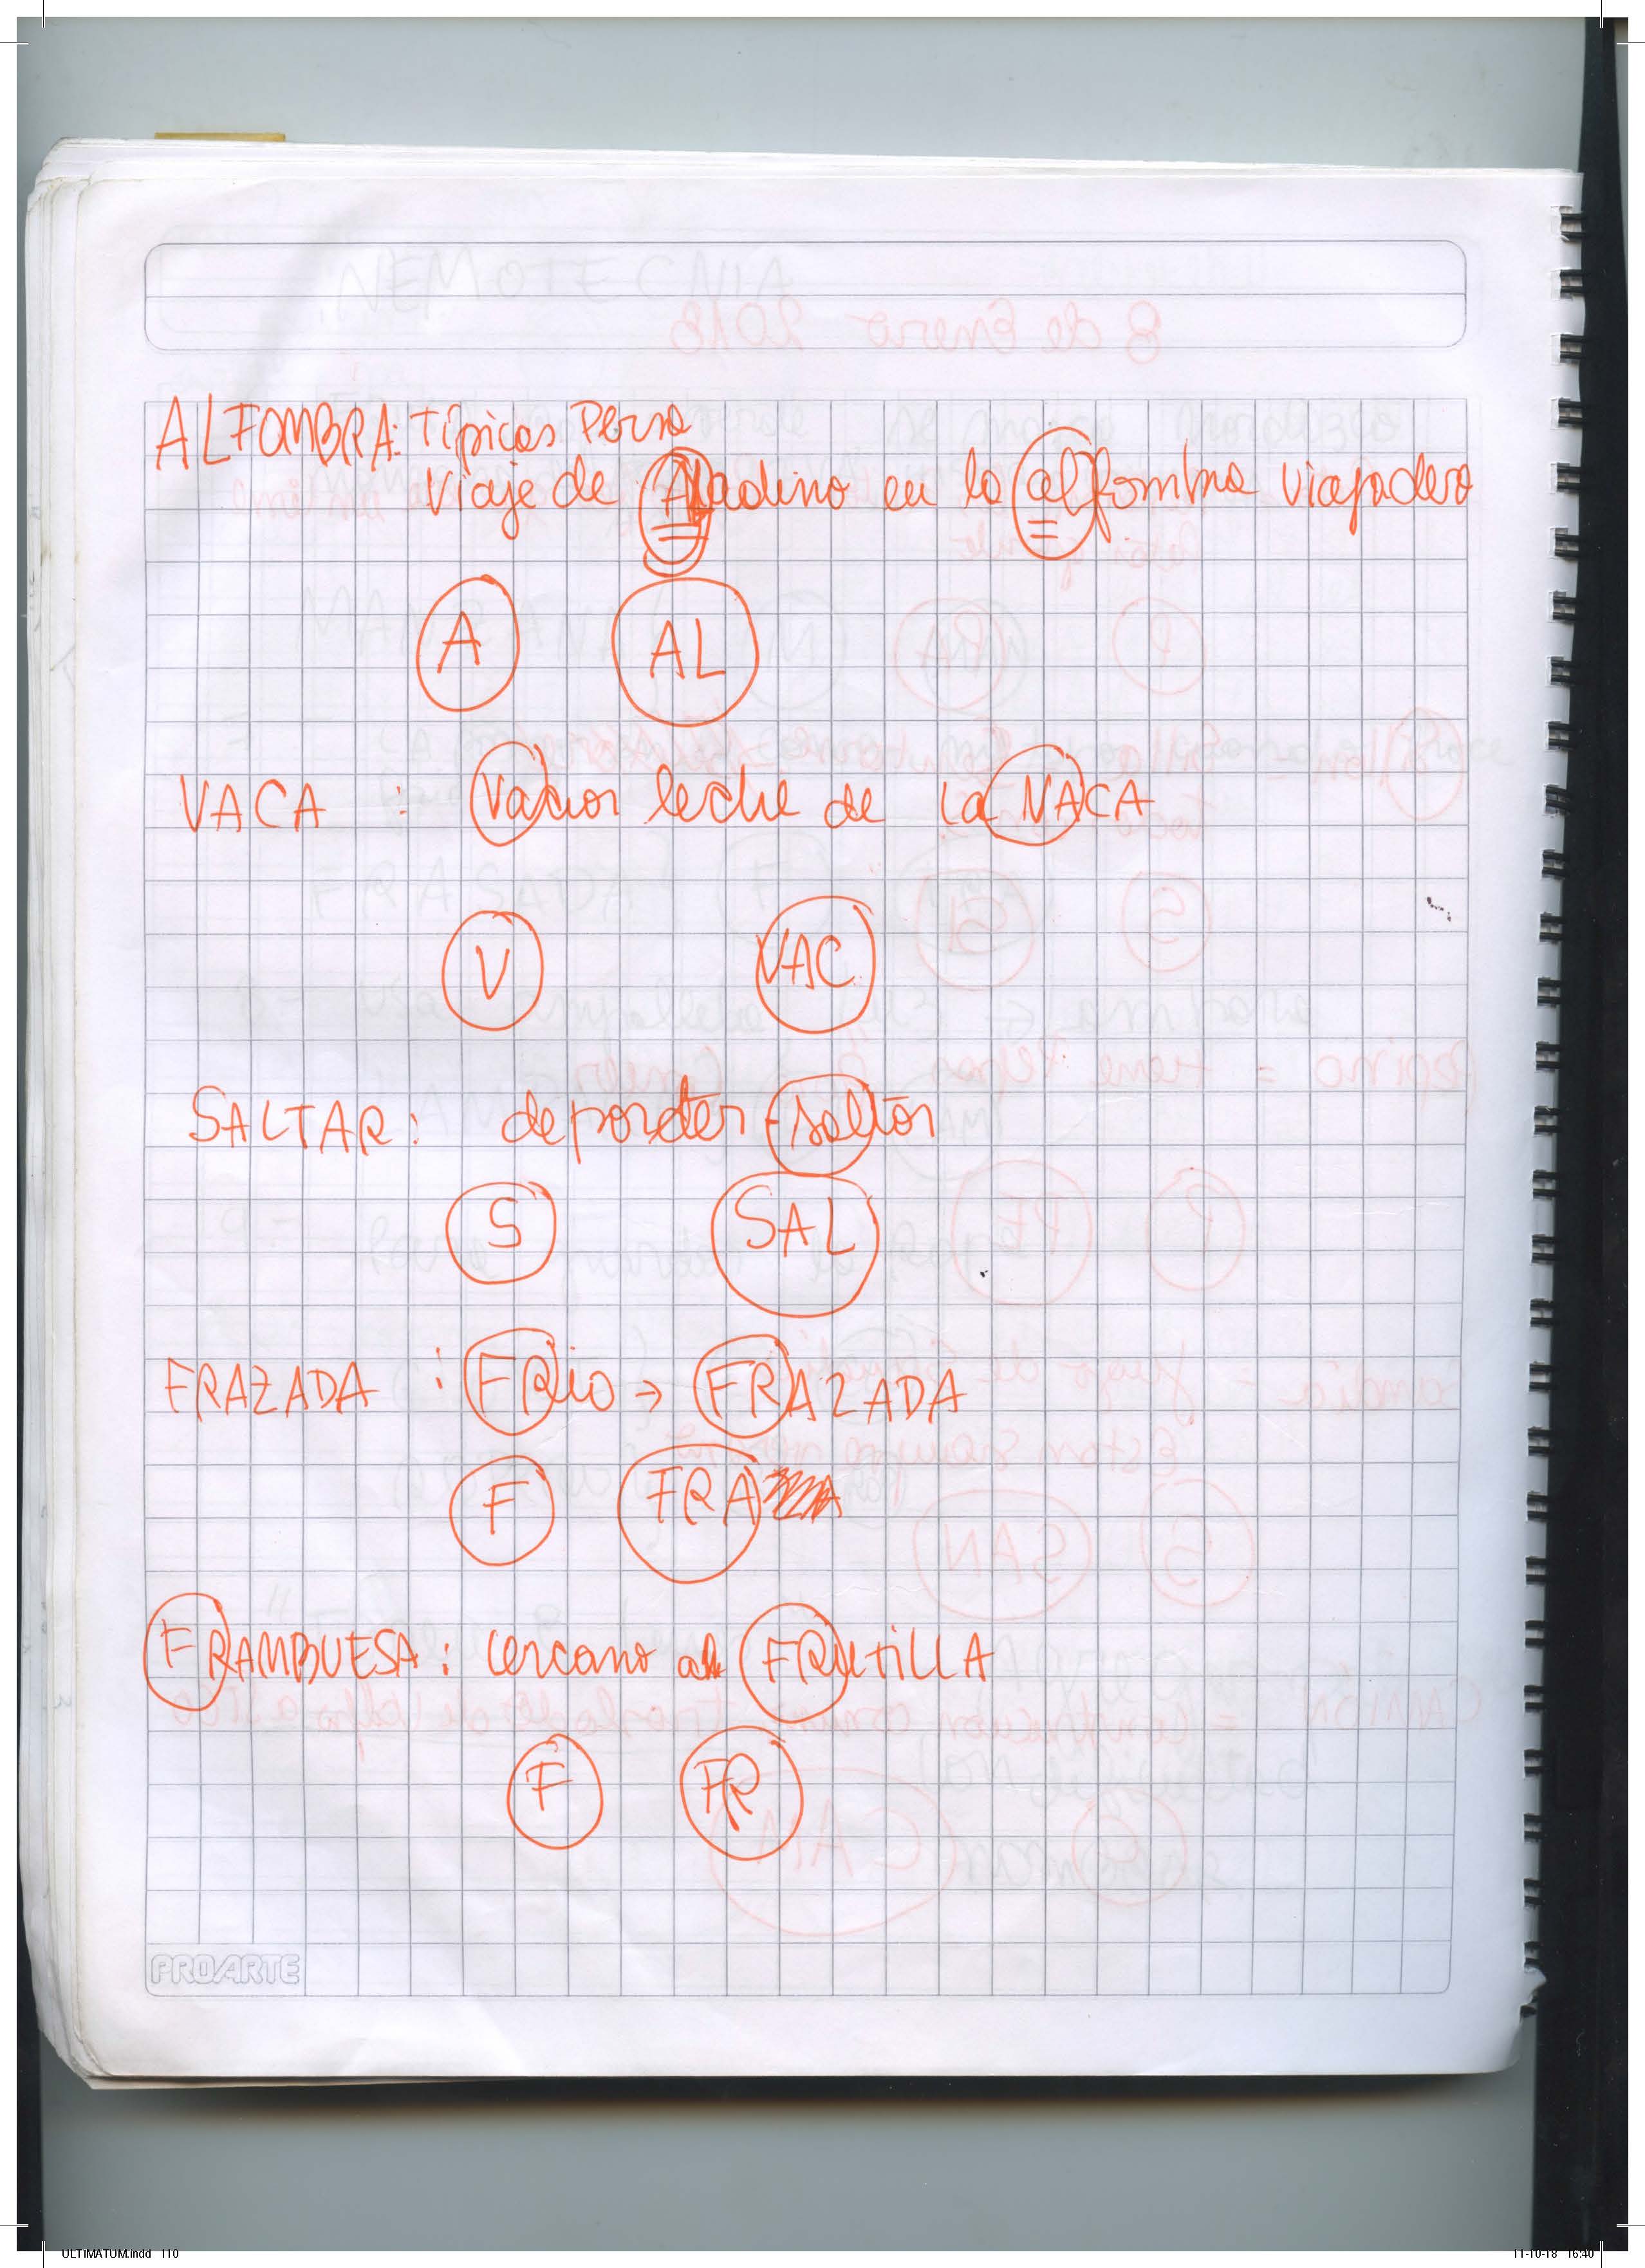 ALFOMBRA: Típicas Persa
Viaje de Aladino en la alfombra viajadera
A AL
VACA : Vaciar leche de la VACA
V VAC
SALTAR: deporter - saltar
S SAL
FRAZADA : FRiO → FRAZADA
F FRA
FRAMBUESA : cercano a FRUTiLLA
F FR
PROARTE
ULTiMATUM.indd 110
11-10-18 16:40